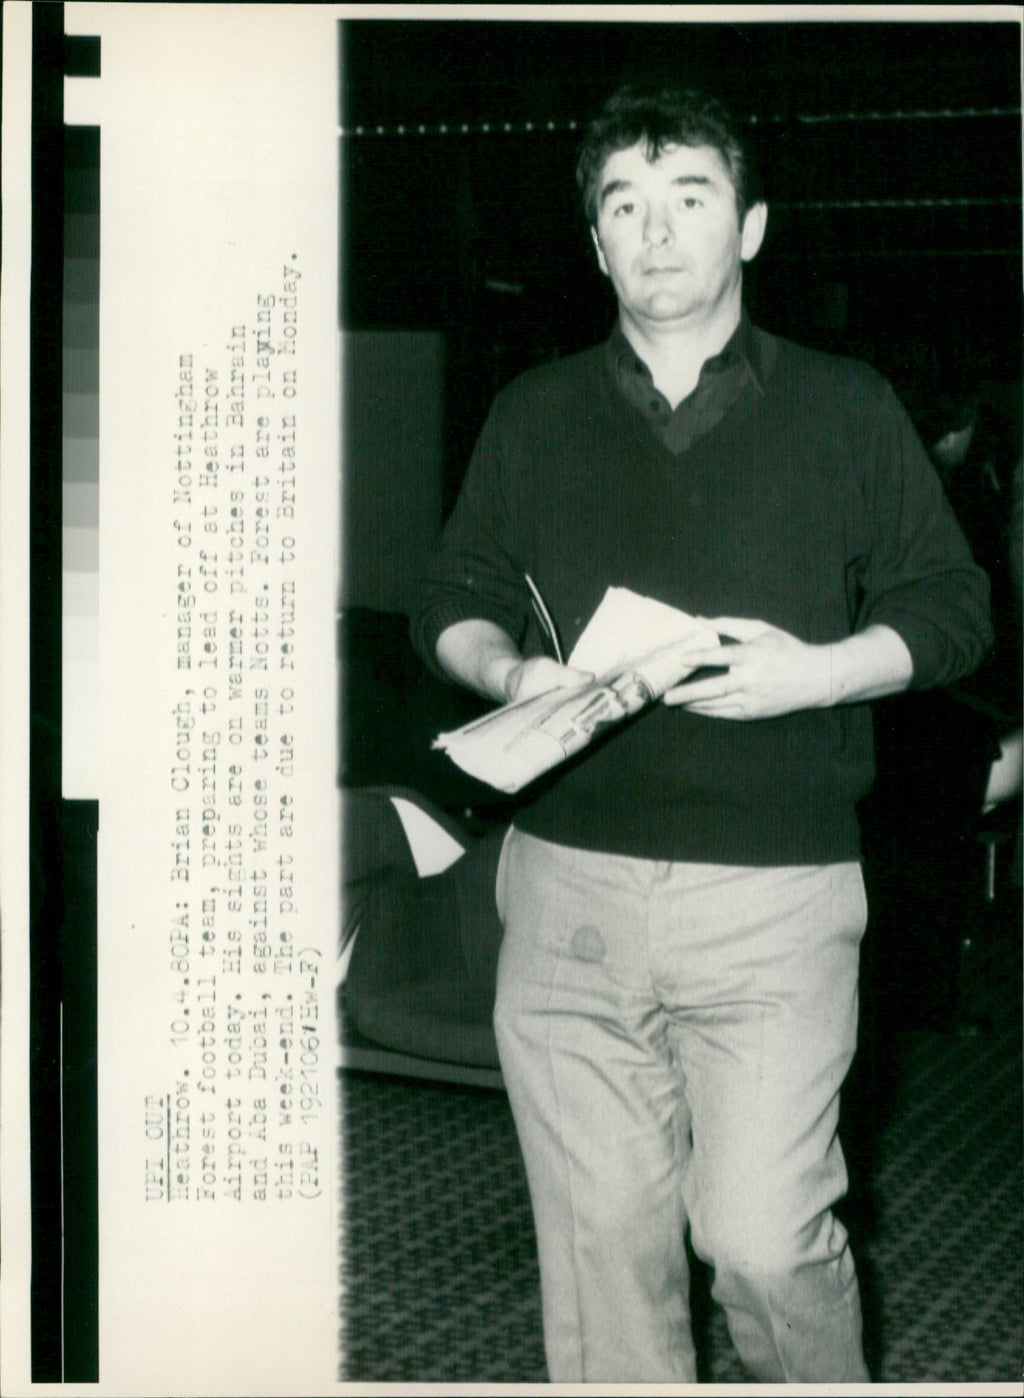 UPI OUT
Heathrow. 10.4.80PA: Brian Clough, manager of Nottingham
Forest football team, preparing to lead off at Heathrow
Airport today. His sights are on warmer pitches in Bahrain
and Aba Dubai, against whose teams Notts. Forest are playing
this week-end. The part are due to return to Britain on Monday.
(PAP 192106/HW-F)